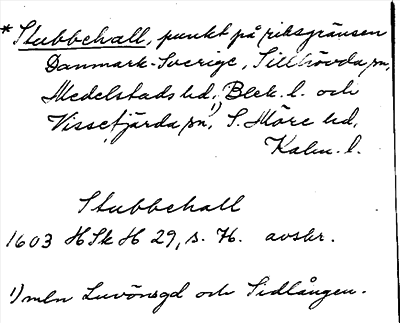 * Stubbehall, punkt på riksgränsen
Danmark-Sverige, Sillhövda sn,
Medelstads hd, Blek. l. och
Vissefjärda sn,¹⁾ S. Möre hd,
Kalm. l.
Stubbehall
1603 HSkH 29, s. 76. avskr.
¹⁾ mln Luvönsgd och Sidlången.